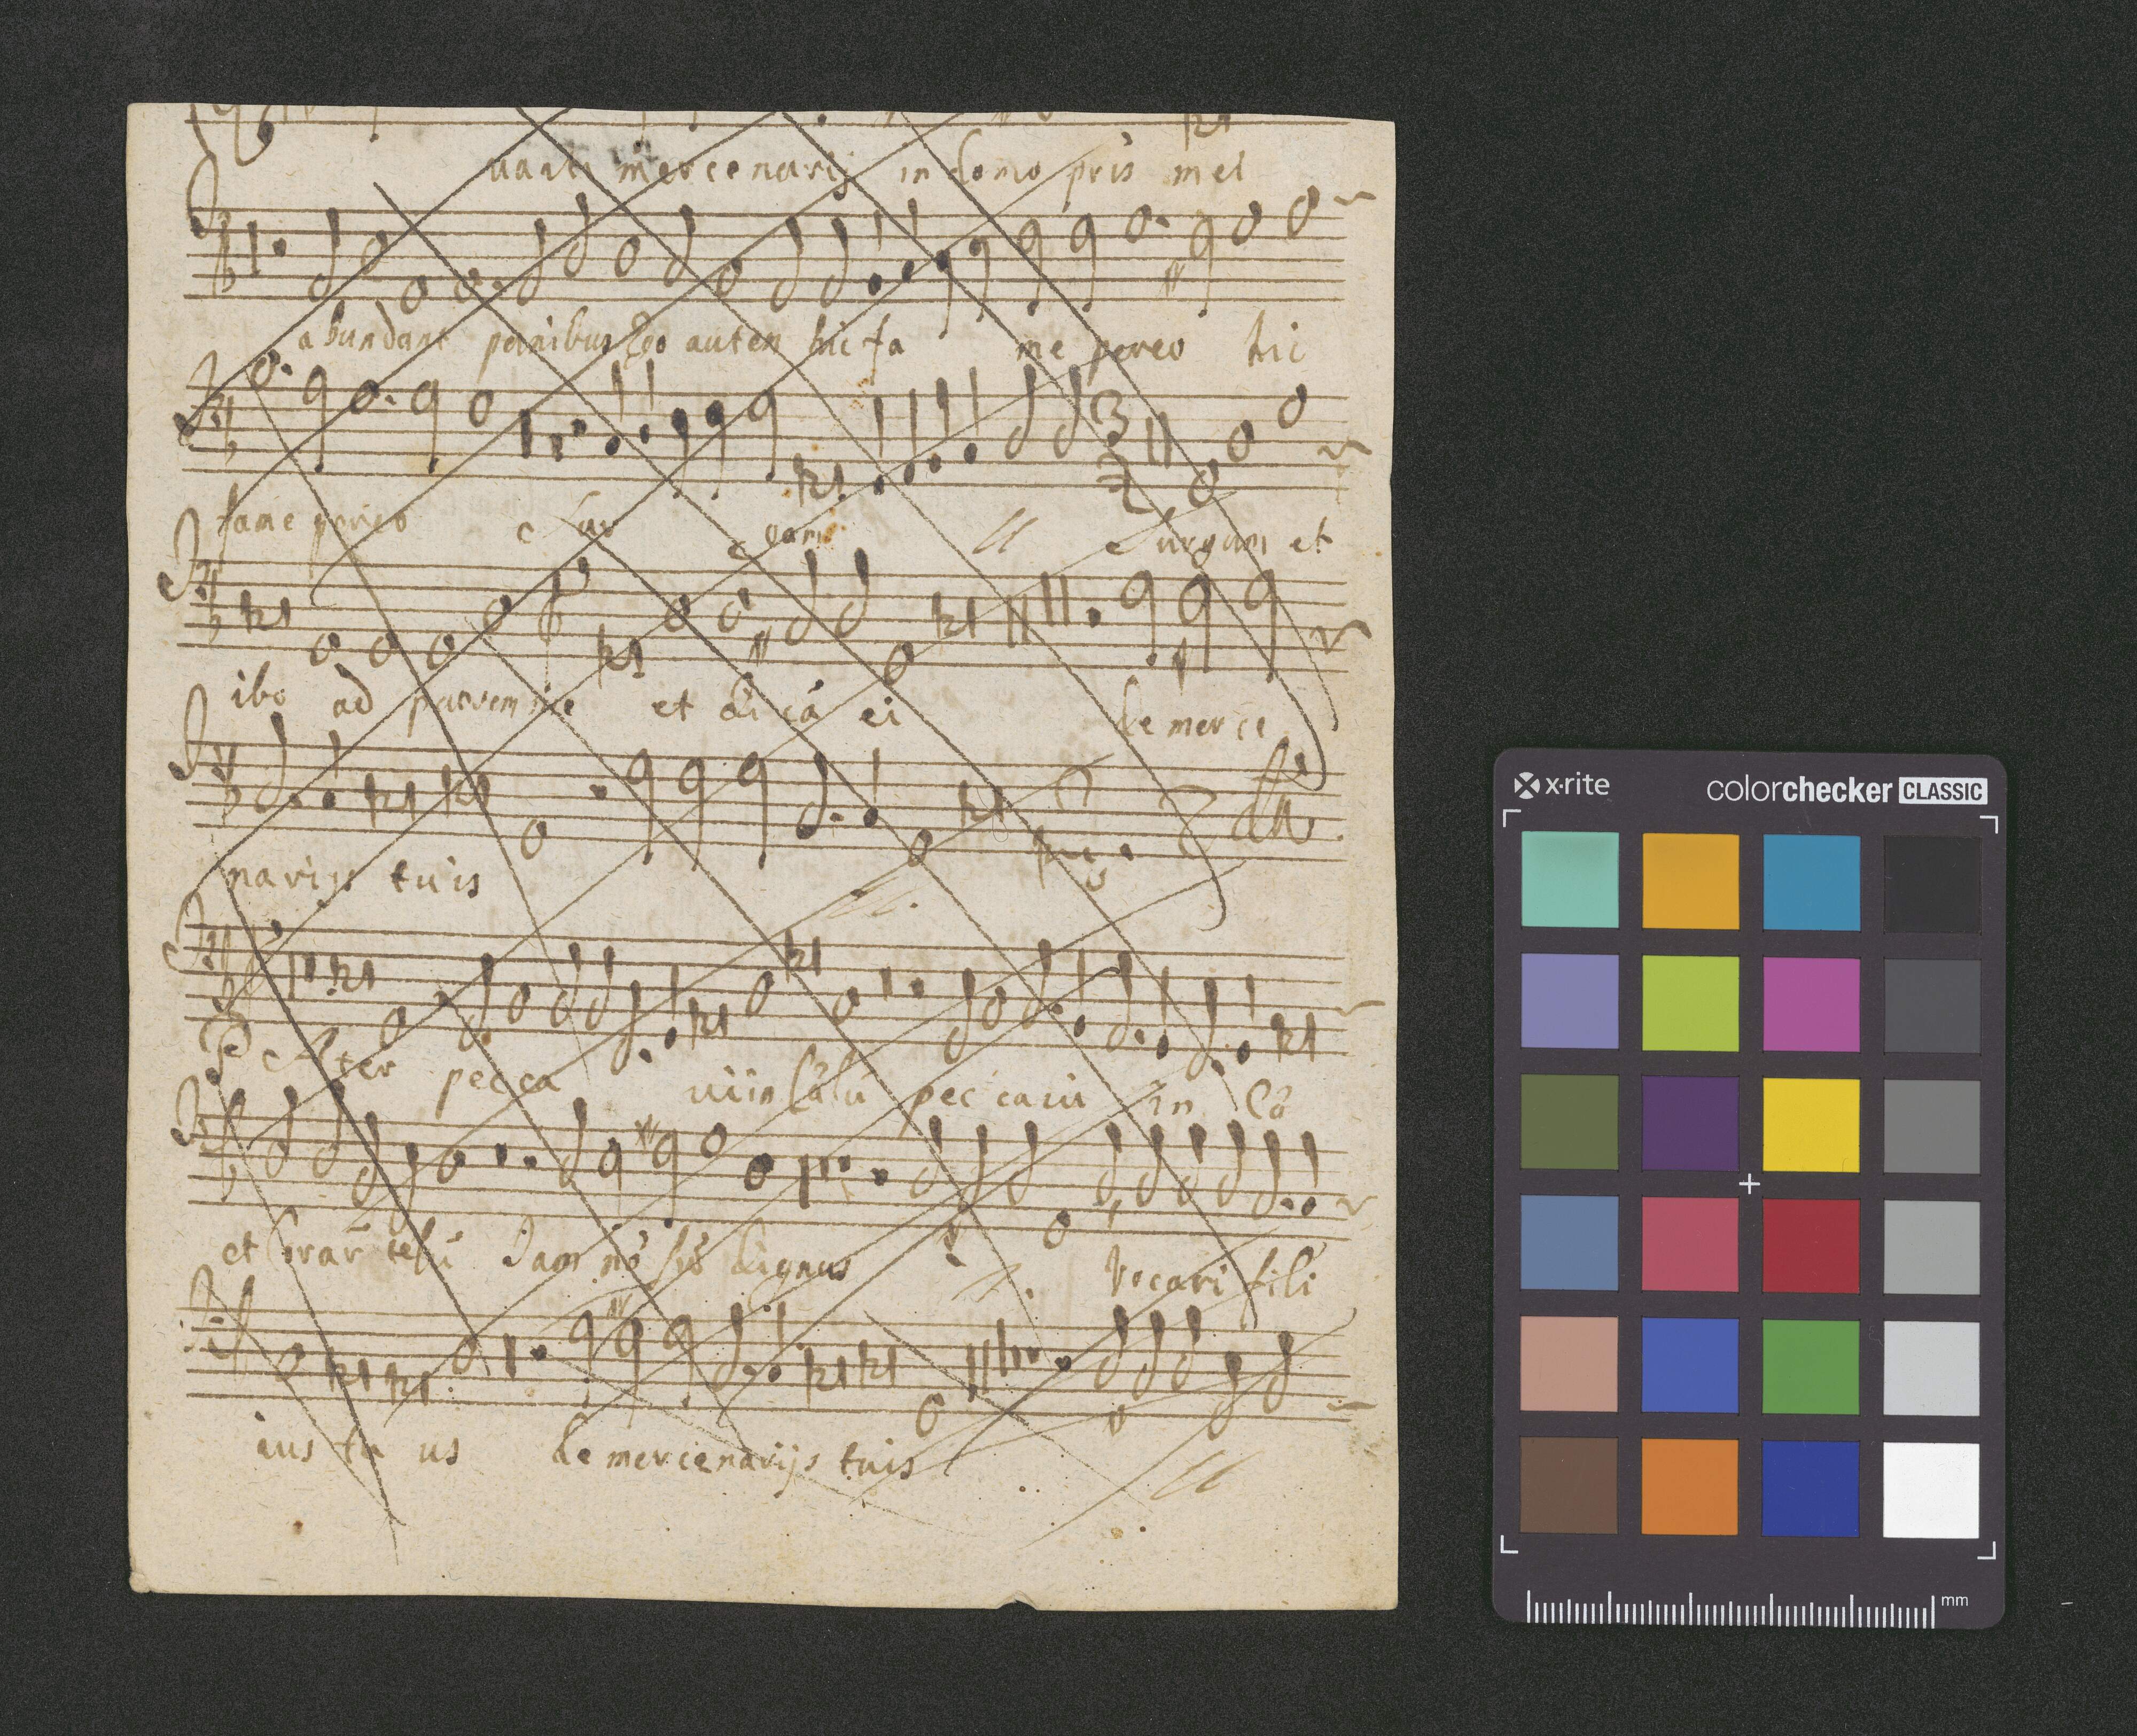 uanti mercenarij in domo pris mei
abundant panibus Ego autem hic fa me pereo hic
fame pereo Sur gam ll Surgam et
ibo ad patrem me et dicã ei de merce
narijs tuis ll.
PAter pecca ui in Cælũ peccaui in Cœ
et Corã te fũ Iam nõ sũ dignus ll. Vocari fili
ius tu us de mercenarijs tuis ll
3
2
x·rite colorchecker CLASSIC
mm